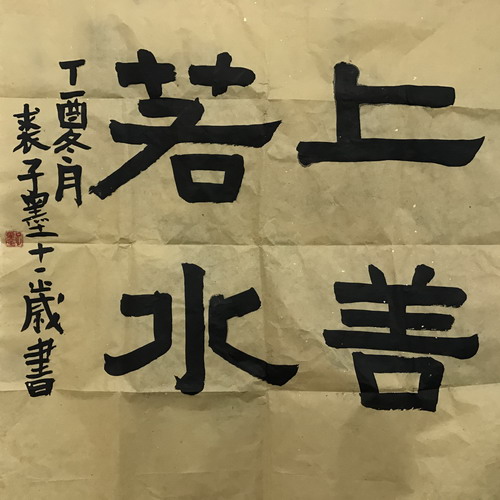 上善
若水
丁酉冬月
裘子墨十一歲書